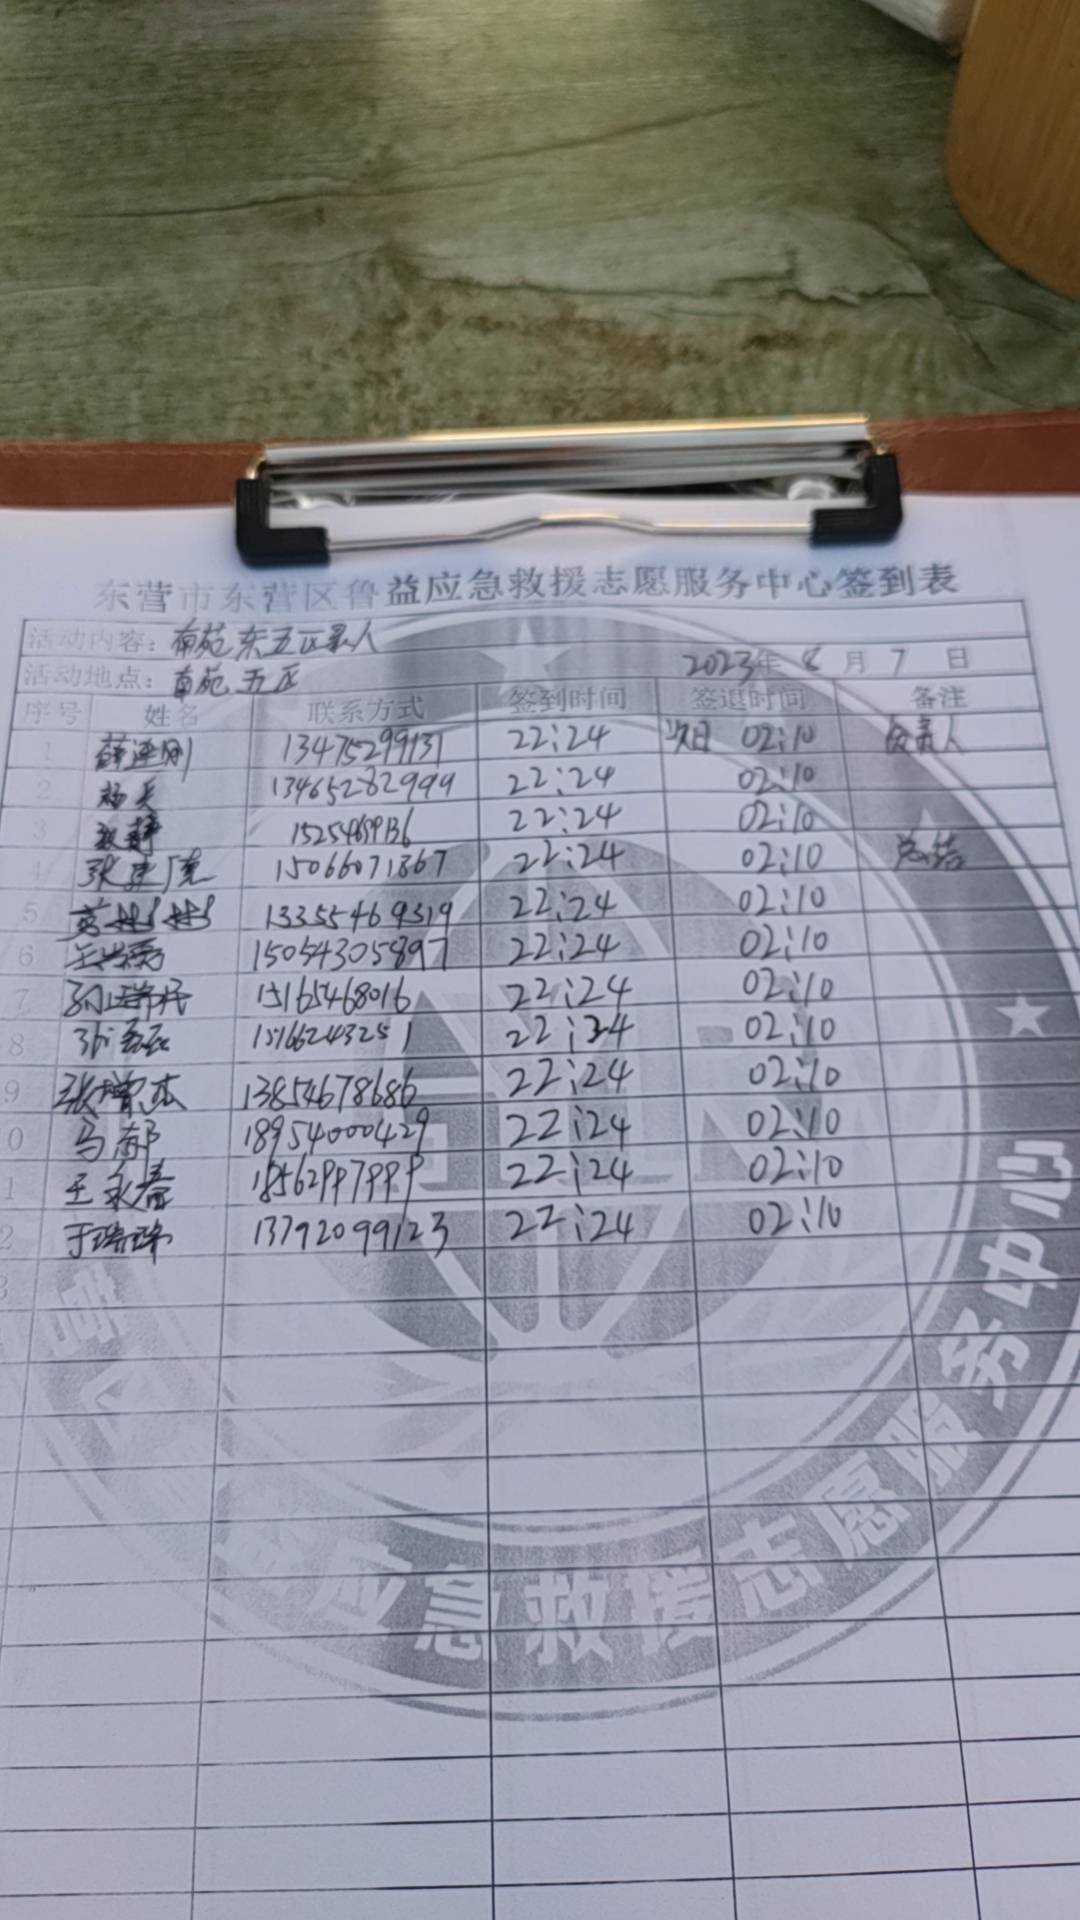 东营市东营区鲁益应急救援志愿服务中心签到表
活动内容：南苑东五区寻人
活动地点：南苑五区 2023年 8 月 7 日
序号 姓名 联系方式 签到时间 签退时间 备注
1 薛连刚 13475299131 22:24 次日 02:10 负责人
2 杨兵 13465282999 22:24 02:10
3 22:24 02:10
4 张建广 15066071367 22:24 02:10 总结
5 13355469319 22:24 02:10
6 15054305897 22:24 02:10
7 15165468016 22:24 02:10
8 张磊磊 15166243251 22:24 02:10
9 张增杰 13854678686 22:24 02:10
0 马郝 18954000429 22:24 02:10
1 王永春 18562997999 22:24 02:10
2 13792099123 22:24 02:10
3
营区
益应急救援志愿服务中心